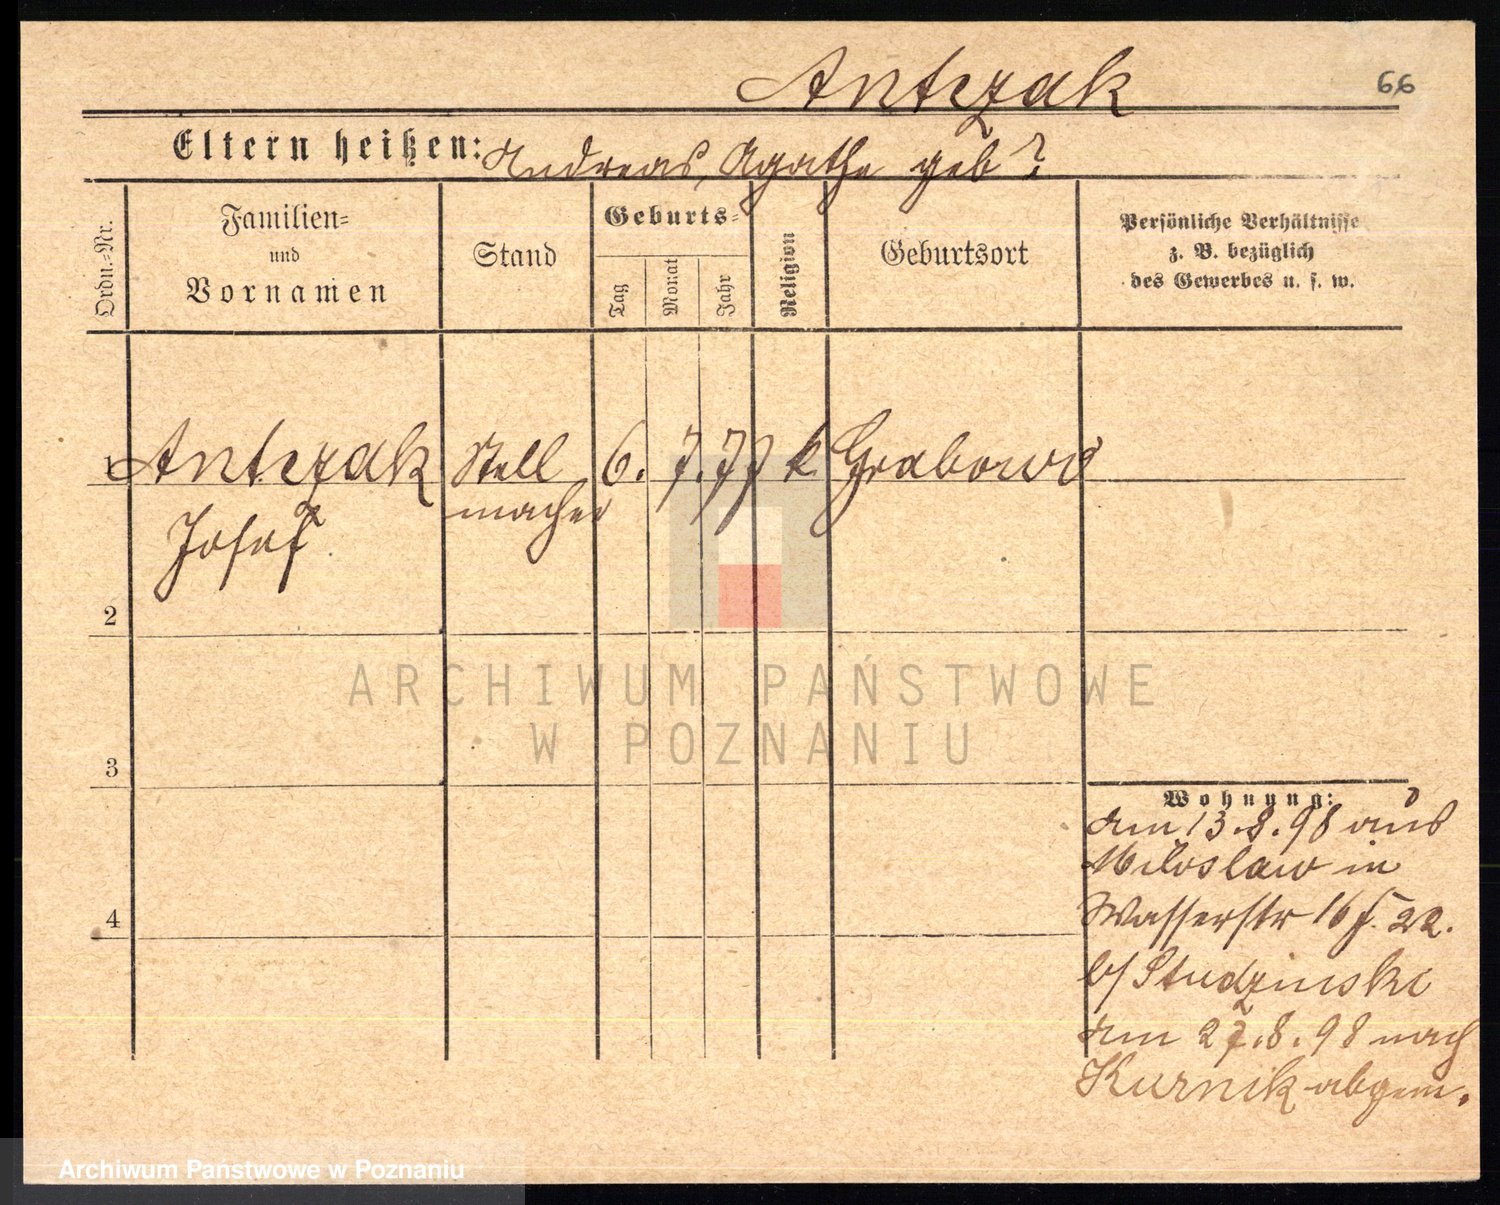 Antczak
66
Eltern heißen: Andreas, Agathe geb ?
Ordn.=Nr.
Familien=
und
Vornamen
Stand
Geburts=
Tag
Monat
Jahr
Religion
Geburtsort
Persönliche Verhältnisse
z. B. bezüglich
des Gewerbes u. s. w.
1 Antczak Stell 6. 7. 77 k Grabowo
macher
Josef
2
ARCHIWUM PAŃSTWOWE
W POZNANIU
3
Wohnung:
am 13.8.98 aus
Miloslaw in
Wasserstr 16 22.
b/ Studzinski
am 27.8.98 nach
Kurnik abgem.
4
Archiwum Państwowe w Poznaniu